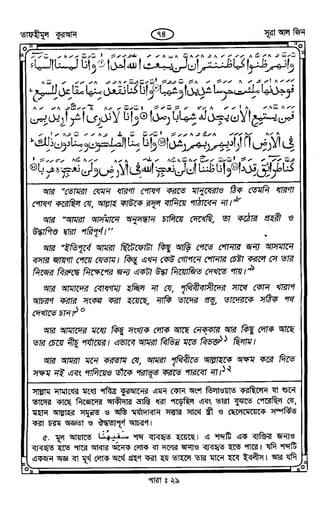 তাফহীমুল কুরআন
৭৪
সূরা আল জিন
وَأَنَّهُمْ ظَنُّوا كَمَا ظَنَنْتُمْ أَنْ لَنْ يَبْعَثَ اللَّهُ أَحَدًا ۝ وَأَنَّا لَمَسْنَا السَّمَاءَ
فَوَجَدْنَاهَا مُلِئَتْ حَرَسًا شَدِيدًا وَشُهُبًا ۝ وَأَنَّا كُنَّا نَقْعُدُ مِنْهَا مَقَاعِدَ لِلسَّمْعِ
فَمَنْ يَسْتَمِعِ الْآنَ يَجِدْ لَهُ شِهَابًا رَصَدًا ۝ وَأَنَّا لَا نَدْرِي أَشَرٌّ أُرِيدَ بِمَنْ
فِي الْأَرْضِ أَمْ أَرَادَ بِهِمْ رَبُّهُمْ رَشَدًا ۝ وَأَنَّا مِنَّا الصَّالِحُونَ وَمِنَّا دُونَ ذَلِكَ
كُنَّا طَرَائِقَ قِدَدًا ۝ وَأَنَّا ظَنَنَّا أَنْ لَنْ نُعْجِزَ اللَّهَ فِي الْأَرْضِ وَلَنْ نُعْجِزَهُ هَرَبًا ۝
আর “তোমরা যেমন ধারণা পোষণ করতে মানুষেরাও ঠিক তেমনি ধারণা
পোষণ করেছিল যে, আল্লাহ কাউকে রসূল বানিয়ে পাঠাবেন না।”
আর “আমরা আসমানে অনুসন্ধান চালিয়ে দেখেছি, তা কঠোর প্রহরী ও
উল্কাপিণ্ড দ্বারা পরিপূর্ণ।”
আর “ইতিপূর্বে আমরা ছিটেফোঁটা কিছু আড়ি পেতে শোনার জন্য আসমানে
বসার জায়গা পেয়ে যেতাম। কিন্তু এখন কেউ গোপনে শোনার চেষ্টা করলে সে তার
নিজের বিরুদ্ধে নিক্ষেপের জন্য একটা উল্কা নিয়োজিত দেখতে পায়।”
আর আমাদের বোধগম্য হচ্ছিল না যে, পৃথিবীবাসীদের সাথে কোন খারাপ
আচরণ করার সংকল্প করা হয়েছে, নাকি তাদের প্রভু, তাদেরকে সঠিক পথ
দেখাতে চান?১০
আর আমাদের মধ্যে কিছু সংখ্যক লোক আছে নেককার আর কিছু লোক আছে
তার চেয়ে নীচু পর্যায়ের। এভাবে আমরা বিভিন্ন মতে বিভক্ত১১ ছিলাম।
আর আমরা মনে করতাম যে, আমরা পৃথিবীতে আল্লাহকে অক্ষম করে দিতে
সক্ষম নই এবং পালিয়েও তাঁকে পরাভূত করতে পারবো না।১২
সাল্লাম নামাযের মধ্যে পবিত্র কুরআনের এমন কোন অংশ তিলাওয়াত করছিলেন যা শুনে
তাদের কাছে নিজেদের আকীদার ভ্রান্তি ধরা পড়েছিল এবং তারা বুঝতে পেরেছিল যে,
মহান আল্লাহর সমুন্নত ও অতি মর্যাদাবান সত্তার সাথে স্ত্রী ও ছেলেমেয়েকে সম্পর্কিত
করা চরম অজ্ঞতা ও ঔদ্ধত্যপূর্ণ আচরণ।
৫. মূল আয়াতে سَفِيهُنَا শব্দ ব্যবহৃত হয়েছে। এ শব্দটি এক ব্যক্তির জন্যও
ব্যবহৃত হতে পারে আবার অনেক লোক বা দলের জন্যও ব্যবহৃত হতে পারে। যদি শব্দটি
একজন অজ্ঞ বা মূর্খ লোক অর্থে গ্রহণ করা হয় তাহলে তার মানে হবে ইবলীস। আর যদি
পারা : ২৯